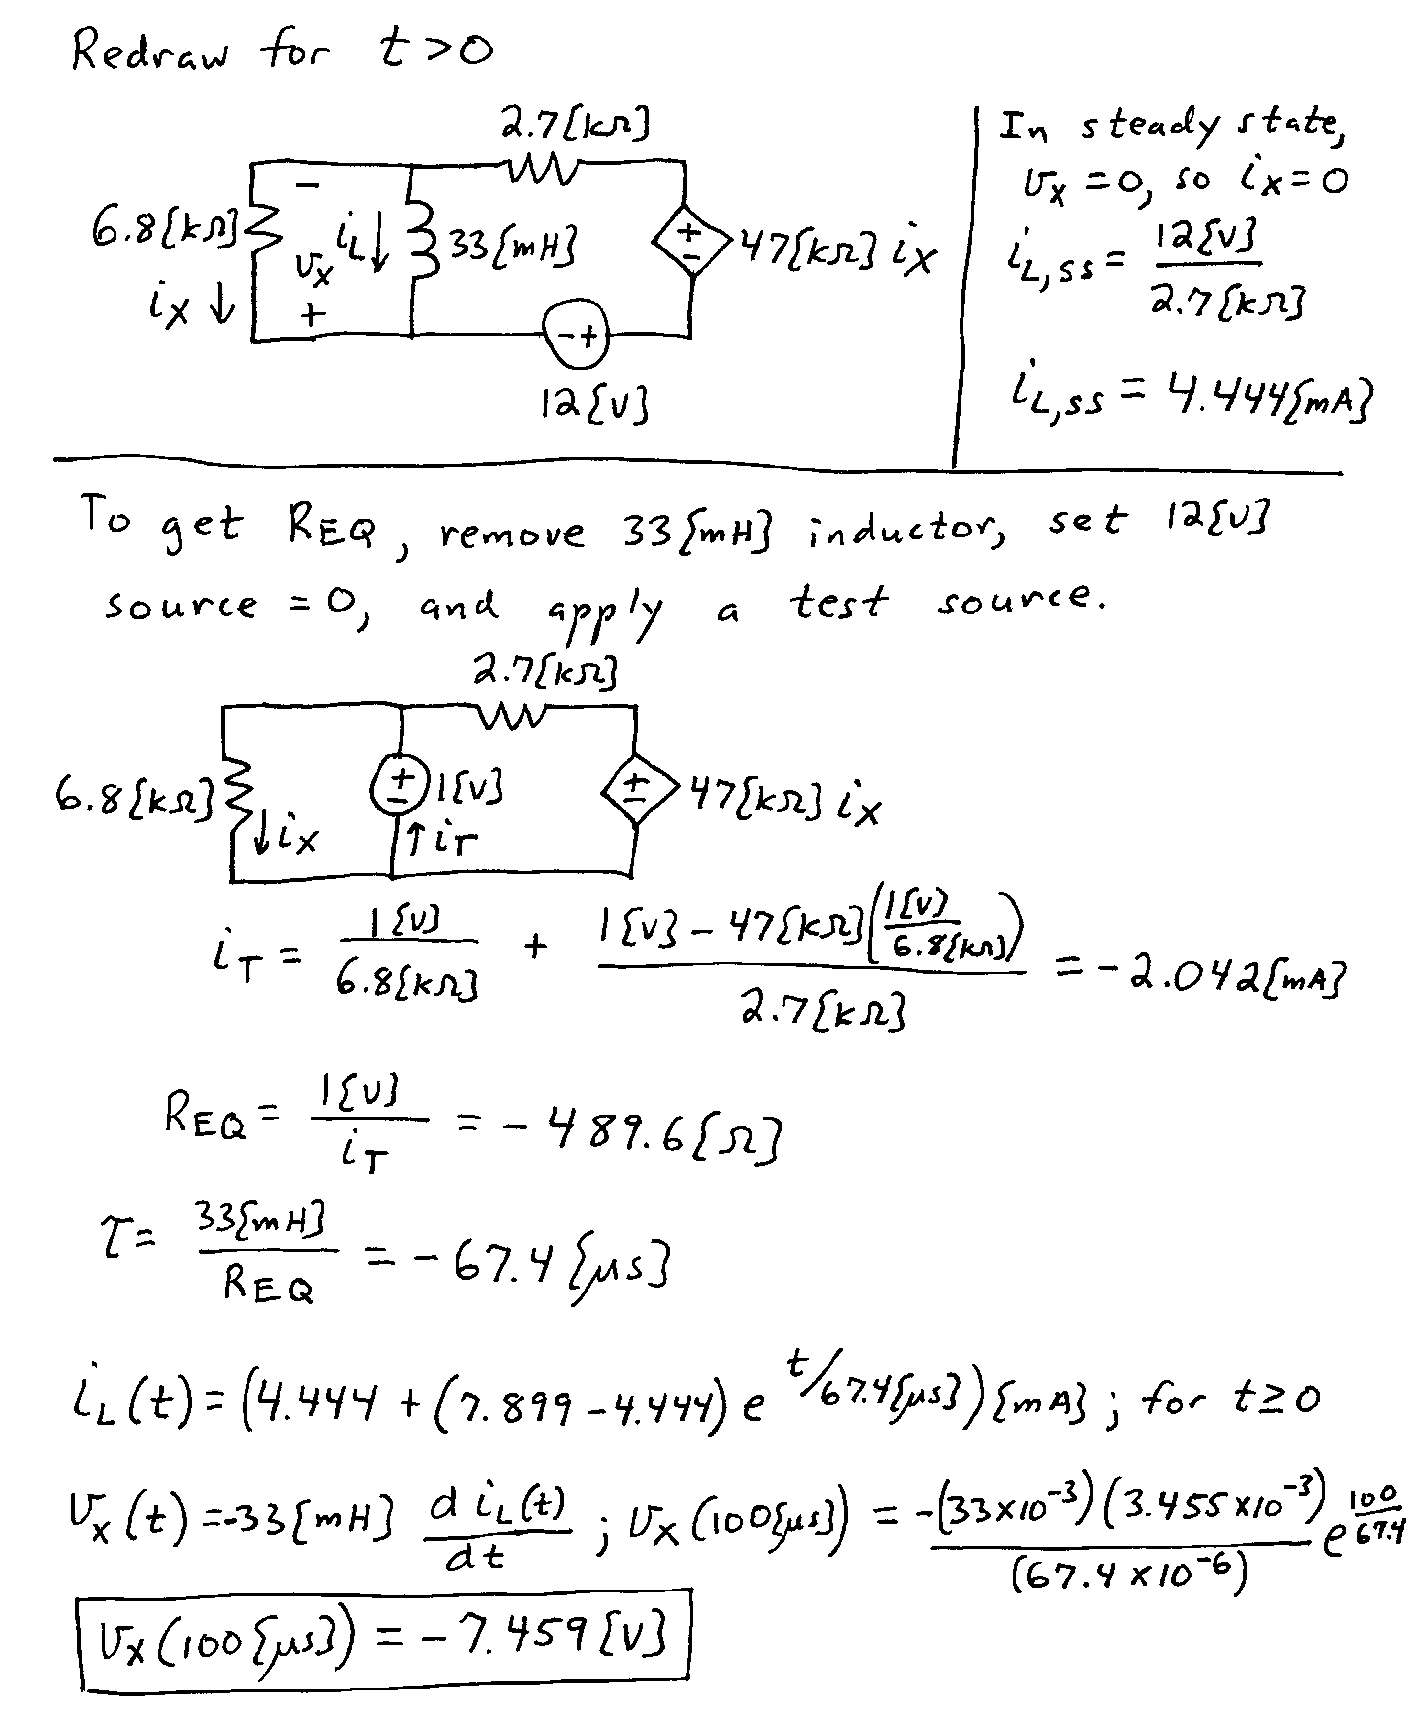 Redraw for t>0
2.7[kΩ]
6.8[kΩ]
−
vx
+
iL↓
33[mH]
+
−
47[kΩ] ix
ix ↓
−+
12[V]
In steady state,
vx = 0, so ix = 0
iL,ss = 12[V] / 2.7[kΩ]
iL,ss = 4.444[mA]
To get REQ, remove 33[mH] inductor, set 12[V]
source = 0, and apply a test source.
2.7[kΩ]
6.8[kΩ]
↓ix
+
−
1[V]
↑iT
+
−
47[kΩ] ix
iT = 1[V] / 6.8[kΩ] + (1[V] − 47[kΩ](1[V] / 6.8[kΩ])) / 2.7[kΩ] = −2.042[mA]
REQ = 1[V] / iT = −489.6[Ω]
τ = 33[mH] / REQ = −67.4[μs]
iL(t) = (4.444 + (7.899 − 4.444) e^t/67.4[μs])[mA]; for t ≥ 0
vx(t) = −33[mH] d iL(t) / dt ; vx(100[μs]) = −(33×10^-3)(3.455×10^-3) / (67.4×10^-6) e^100/67.4
vx(100[μs]) = −7.459[V]